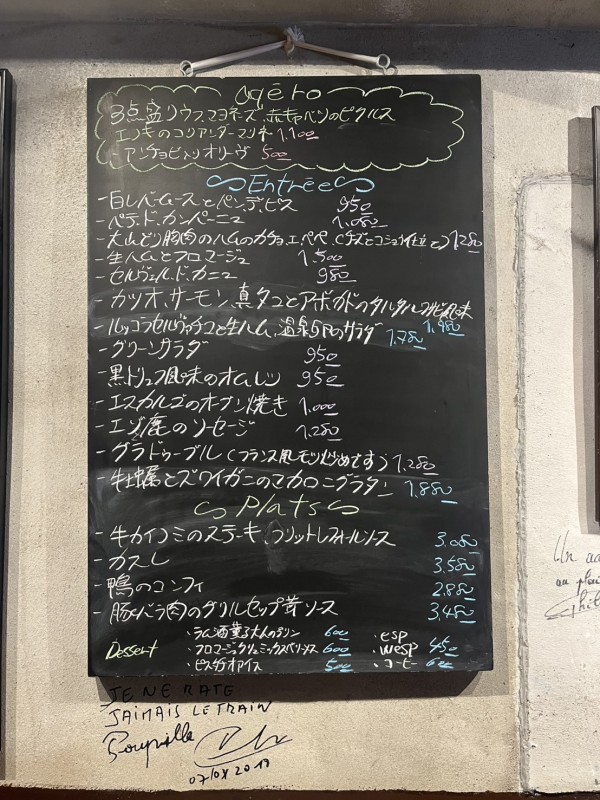 apéro
3点盛りウフマヨネーズ、赤キャベツのピクルス
エノキのコリアンダーマリネ 1.100
アンチョビ入りオリーヴ 500
Entrée
- 白レバームースとパンデピス 950
- パテ・ド・カンパーニュ 1.080
- 大山どり胸肉のハムのカチョ・エ・ペペ(チーズとコショウ仕立て) 1.280
- 生ハムとフロマージュ 1.500
- セルヴェル・ド・カニュ 980
- カツオ、サーモン、真タコとアボカドのタルタルワサビ風味 1.980
- ルッコラセルヴァチコと生ハム、温泉卵のサラダ 1.780
- グリーンサラダ 950
- 黒トリュフ風味のオムレツ 950
- エスカルゴのオーブン焼き 1.000
- エゾ鹿のソーセージ 1.280
- グラドゥーブル(フランス風モツ炒めです) 1.280
- 牡蠣とズワイガニのマカロニグラタン 1.880
Plats
- 牛カイノミのステーキ・フリット 3.080
- カスレ 3.580
- 鴨のコンフィ 2.880
- 豚バラ肉のグリルセップ茸ソース 3.480
Dessert
・ラム酒薫る大人のプリン 600
・フロマージュクリュミックスベリーソース 600
・ピスタチオアイス 500
・ESP
・WESP 450
・コーヒー 600
JE NE RATE
JAMAIS LE TRAIN
Un
au